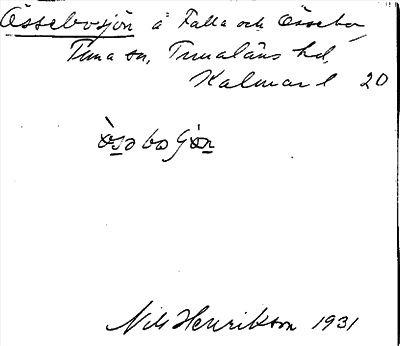 Össebosjön å Falla och Össebo,
Tuna sn, Tunaläns hd,
Kalmar l 20
ò̀sə bo ʃö̀n
Nils Henrikson 1931